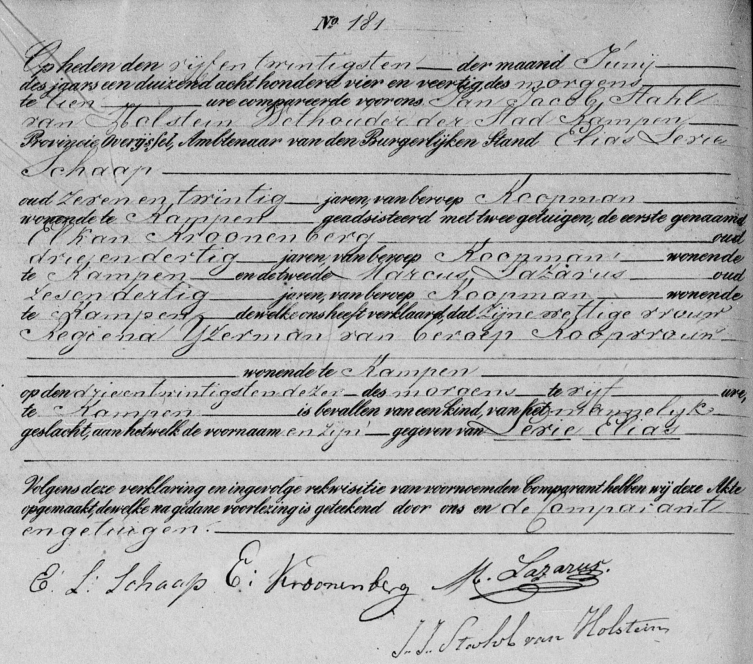 No. 181
Op heden den vijf en twintigsten der maand Junij
des jaars een duizend acht honderd vier en veertig des morgens
te tien ure compareerde voor ons Jan Jacob Stahl
van Holstein Wethouder der Stad Kampen
Provincie Overijssel, Ambtenaar van den Burgerlijken Stand Elias Serie
Schaap
oud zeven en twintig jaren, van beroep Koopman
wonende te Kampen geadsisteerd met twee getuigen, de eerste genaamd
Elkan Kroonenberg oud
drie en dertig jaren, van beroep Koopman wonende
te Kampen en de tweede Marcus Lazarus oud
zes en dertig jaren, van beroep Koopman wonende
te Kampen dewelke ons heeft verklaard, dat zijne wettige vrouw
Regiena IJzerman van beroep Koopvrouw
wonende te Kampen
op den drie en twintigsten dezer des morgens te vijf ure,
te Kampen is bevallen van een kind, van het mannelijk
geslacht, aan hetwelk de voornaam en zijn gegeven van Serie Elias
Volgens deze verklaring en ingevolge rekwisitie van voornoemden Comparant hebben wij deze Akte
opgemaakt, dewelke na gedane voorlezing is geteekend door ons en de Comparant
en getuigen.
E: L: Schaap E: Kroonenberg M. Lazarus.
J. J. Stahl van Holstein